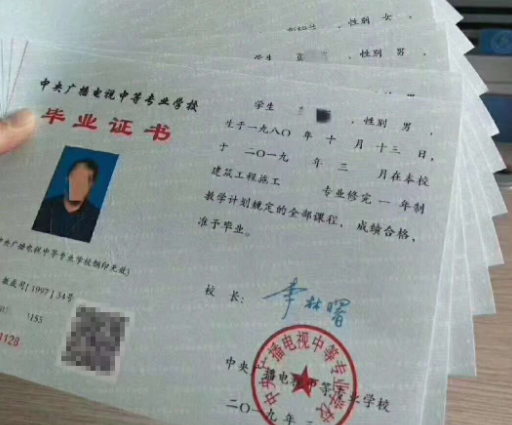 性别 女,
学生
性别 男
中央广播电视中等专业学校
毕业证书
学生
性别 男,
生于一九八〇年 十 月 十三 日,
于 二〇一九 年 三 月在本校
建筑工程施工 专业修完 一 年制
教学计划规定的全部课程,成绩合格,
准予毕业。
中央广播电视中等专业学校钢印无效)
[1997]34号
155
1128
校 长:
李林曙
中央广播电视中等专业学校
中央广播电视中等专业学校
二〇一九年